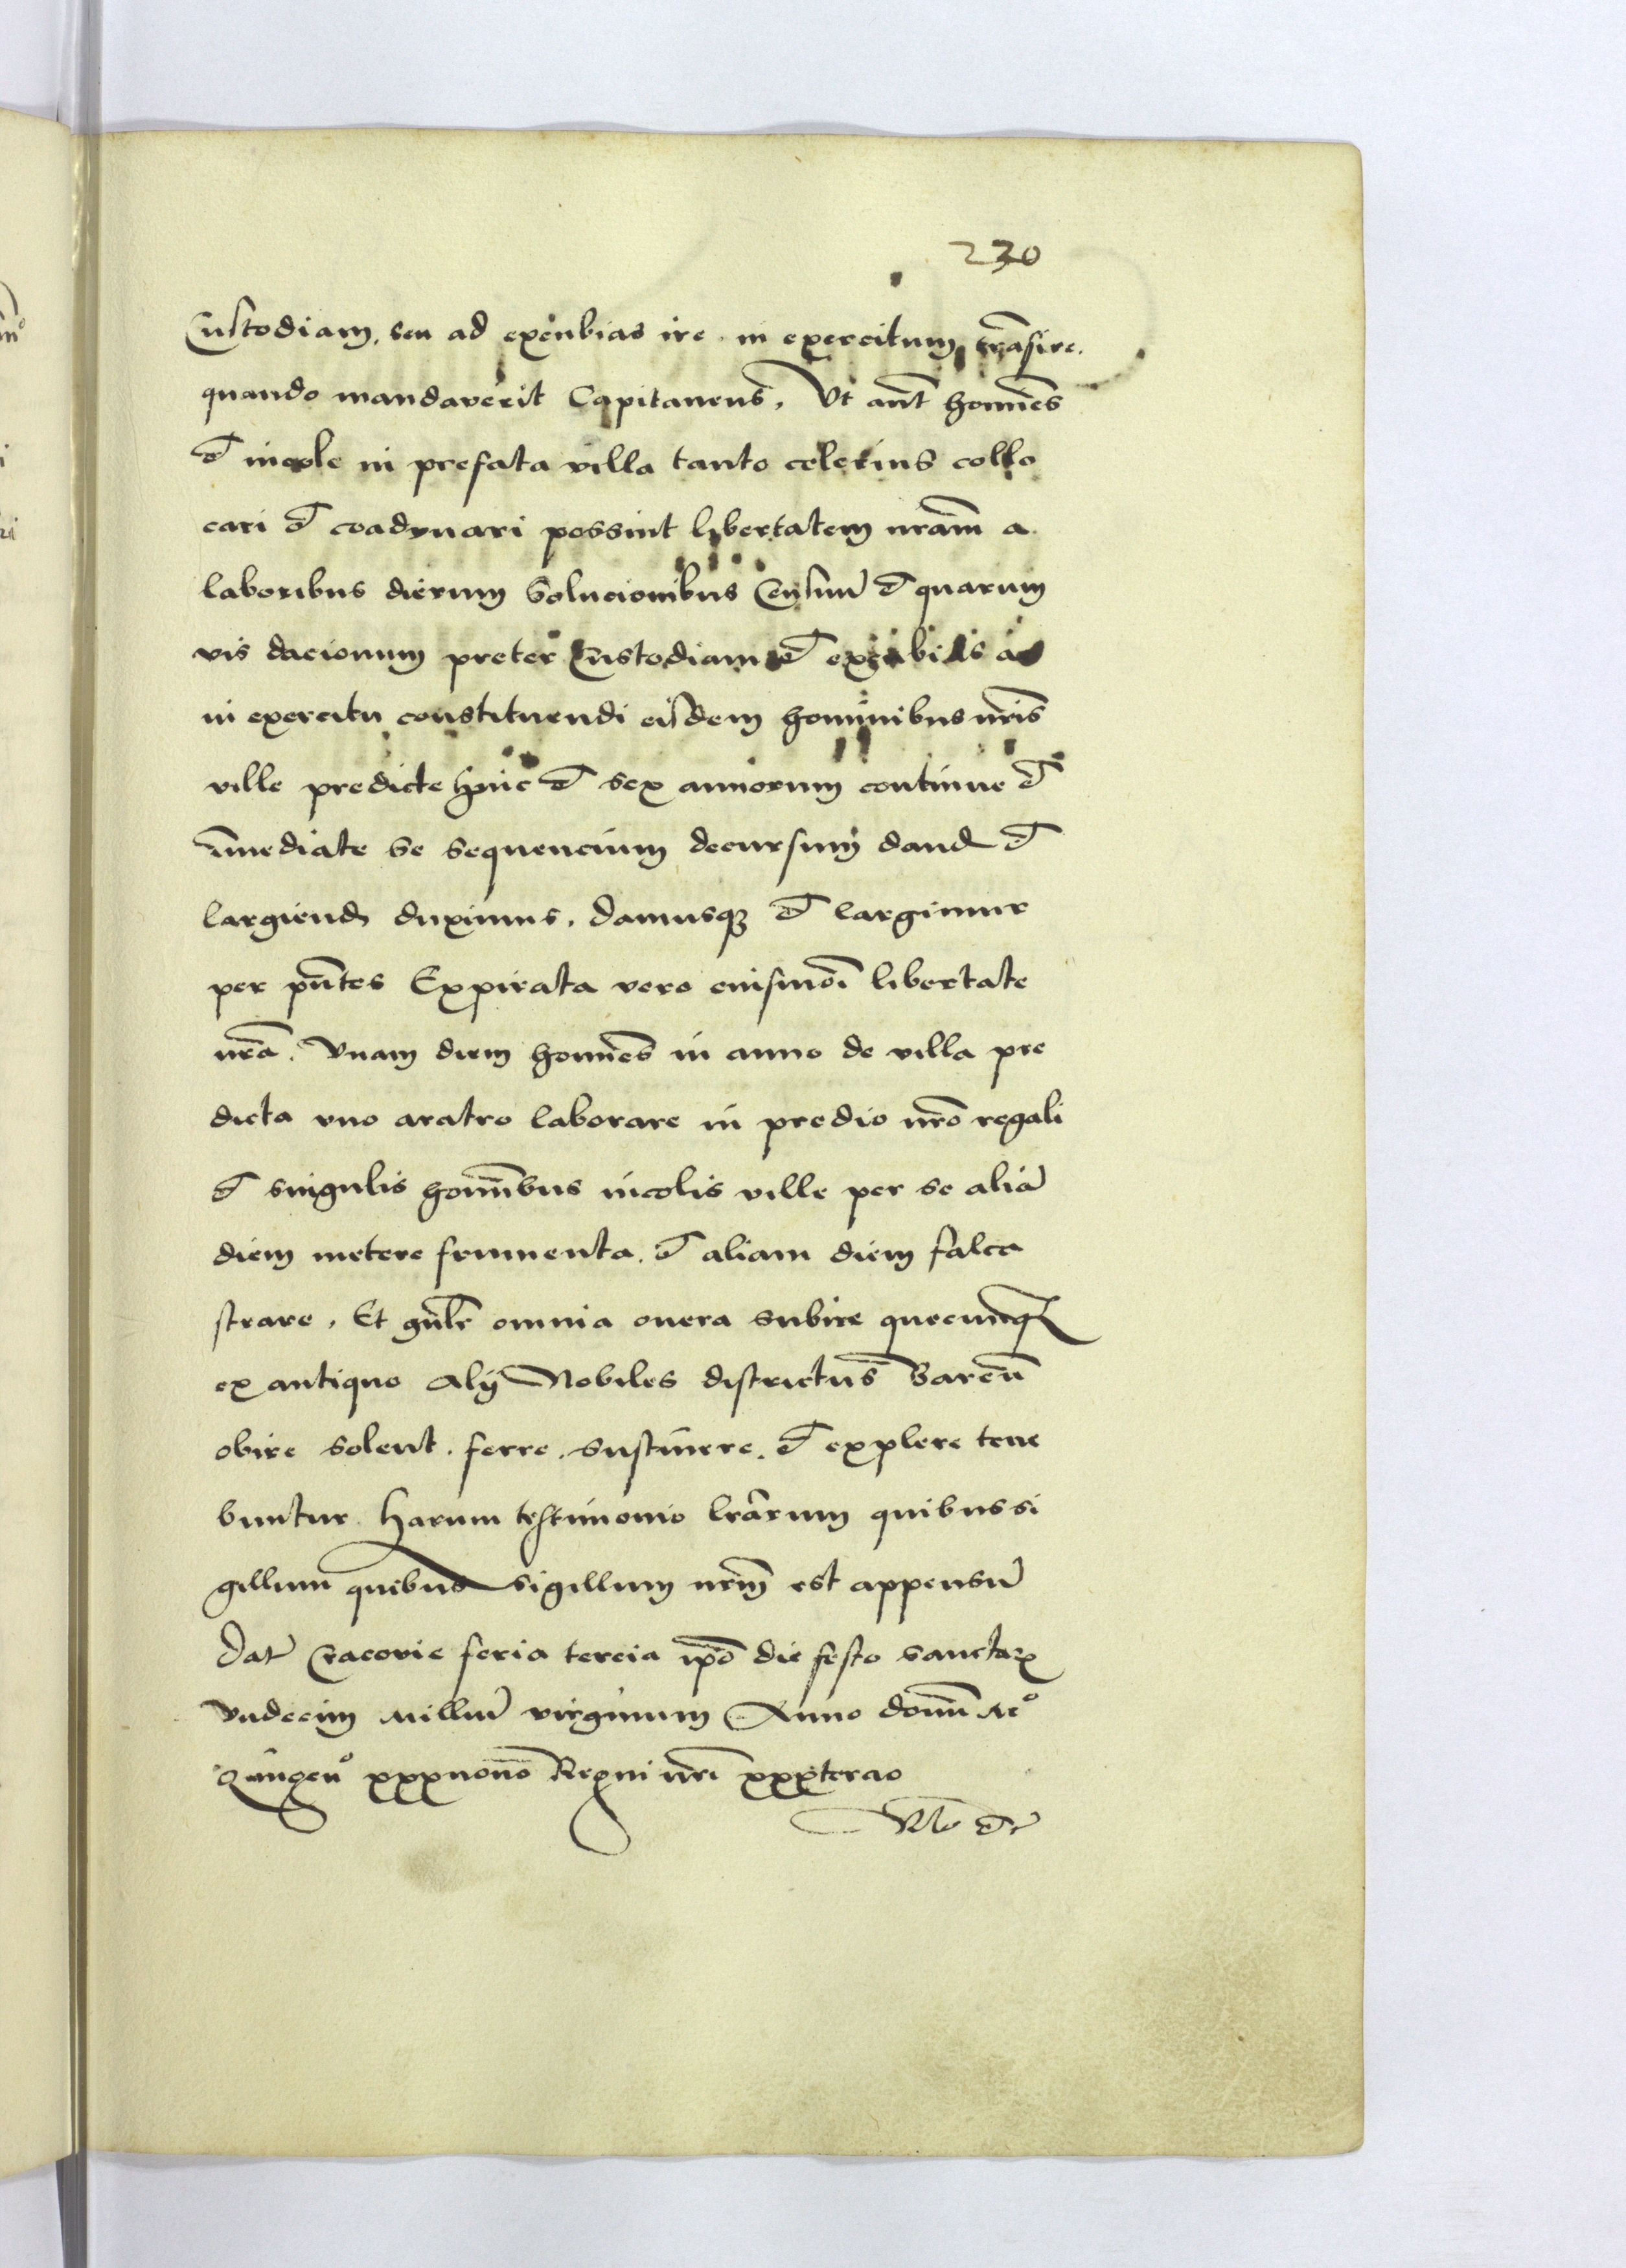 230
Custodiam, seu ad excubias ire. in exercitum trãsire.
quando mandaverit Capitaneus, Vt aũt homines
et incole in prefata villa tanto celerius collo
cari et coadvnari possint libertatem nrãm a
laboribus dierum Solucionibus Censuũ et quarum
vis dacionum preter Custodiam et excubias ac
in exercitu constituendi eisdem hominibus nrĩs
ville predicte hinc et sex annorum continue et
ĩmediate se sequencium decursum dand et
largiend duximus, damusqꝫ et largimur
per pñtes Expirata vero eiusmõi libertate
nrã. Vnam diem homines in anno de villa pre
dicta vno aratro laborare in predio nrõ regali
et singulis homĩbus incolis ville per se aliã
diem metere frumenta. et aliam diem falca
strare, Et gñlr omnia onera subire quecunqꝫ
ex antiquo alij Nobiles districtus Bareñ
obire solent. ferre. sustinere. et explere tene
buntur. harum testimonio lrãrum quibus si
gillum quibus sigillum nrm̃ est appensũ
Dat Cracovie feria tercia ipõ die festo sanctaꝝ
vndecim Milliũ virginum Anno domĩ Mº
Quingenº xxxnono Regni nrĩ xxxtercio